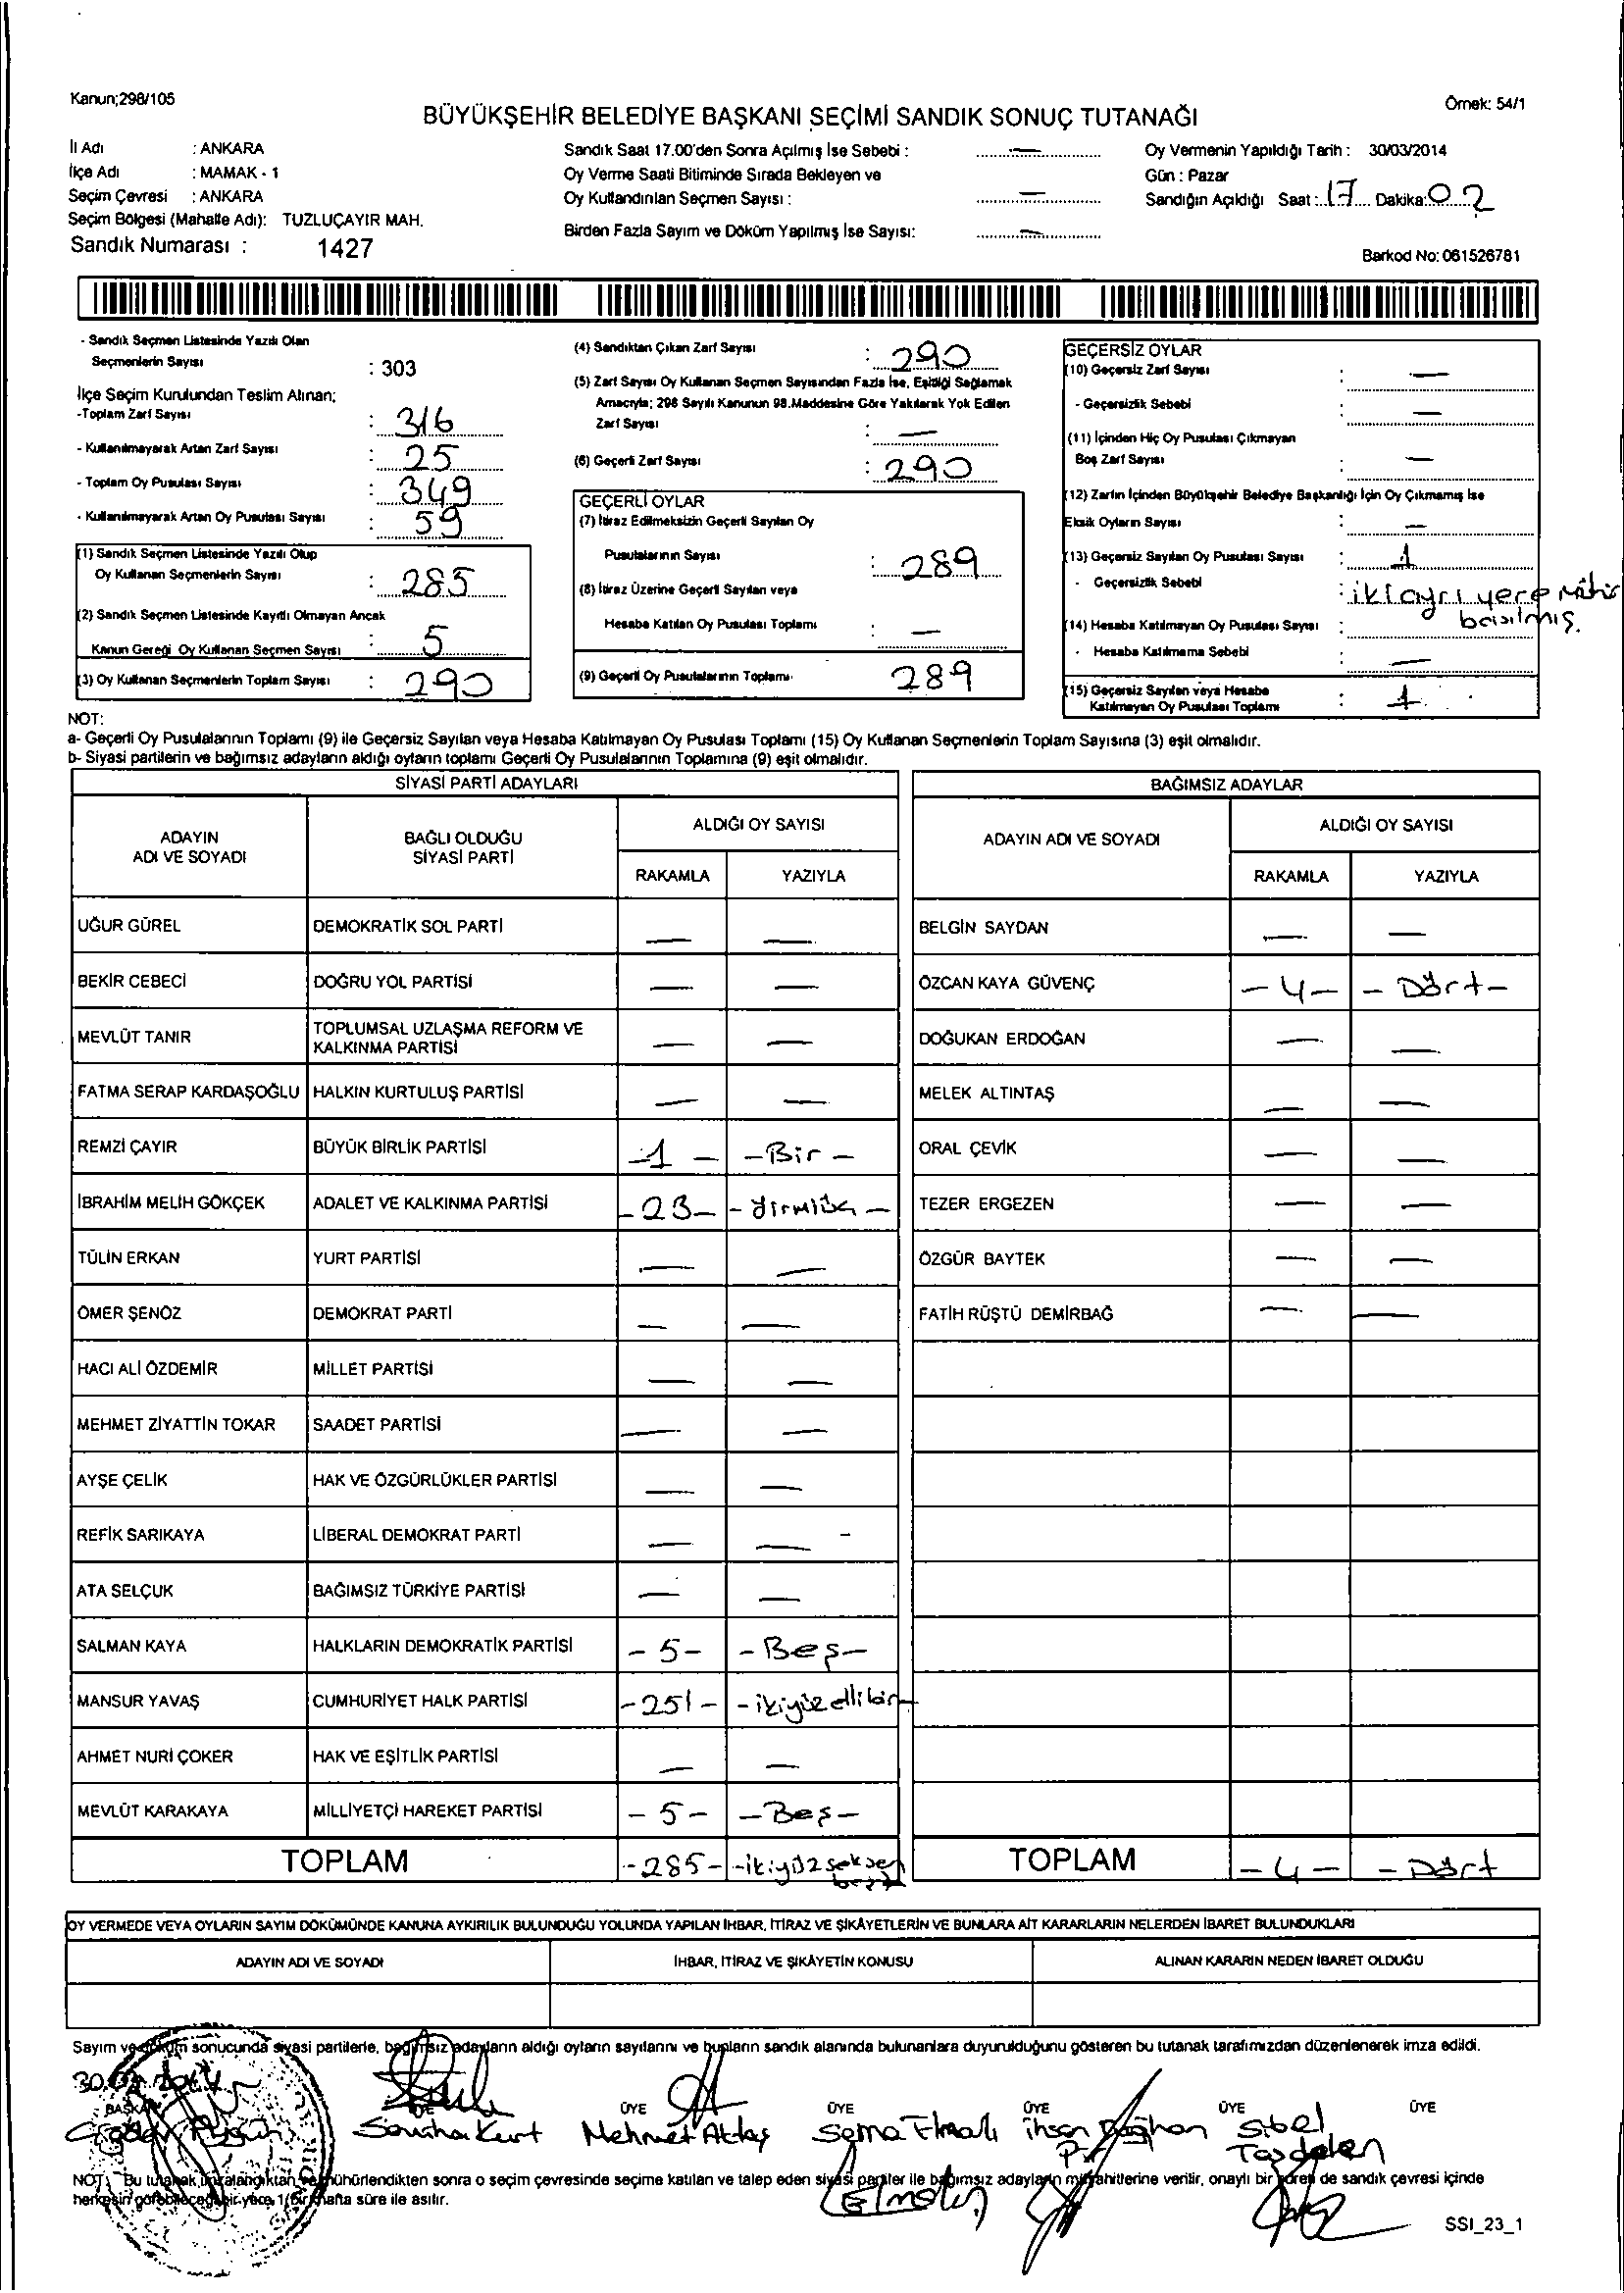 Kanun;298/105
Örnek: 54/1
BÜYÜKŞEHİR BELEDİYE BAŞKANI SEÇİMİ SANDIK SONUÇ TUTANAĞI
İl Adı : ANKARA
İlçe Adı : MAMAK - 1
Seçim Çevresi : ANKARA
Seçim Bölgesi (Mahalle Adı): TUZLUÇAYIR MAH.
Sandık Numarası : 1427
Sandık Saat 17.00'den Sonra Açılmış İse Sebebi : —
Oy Verme Saati Bitiminde Sırada Bekleyen ve
Oy Kullandırılan Seçmen Sayısı : —
Birden Fazla Sayım ve Döküm Yapılmış İse Sayısı: —
Oy Vermenin Yapıldığı Tarih : 30/03/2014
Gün : Pazar
Sandığın Açıldığı Saat : 17 Dakika: 02
Barkod No: 061526781
- Sandık Seçmen Listesinde Yazılı Olan
Seçmenlerin Sayısı : 303
İlçe Seçim Kurulundan Teslim Alınan;
-Toplam Zarf Sayısı : 316
- Kullanılmayarak Artan Zarf Sayısı : 25
- Toplam Oy Pusulası Sayısı : 349
- Kullanılmayarak Artan Oy Pusulası Sayısı : 59
(1) Sandık Seçmen Listesinde Yazılı Olup
Oy Kullanan Seçmenlerin Sayısı : 285
(2) Sandık Seçmen Listesinde Kayıtlı Olmayan Ancak
Kanun Gereği Oy Kullanan Seçmen Sayısı : 5
(3) Oy Kullanan Seçmenlerin Toplam Sayısı : 290
(4) Sandıktan Çıkan Zarf Sayısı : 290
(5) Zarf Sayısı Oy Kullanan Seçmen Sayısından Fazla İse, Eşitliği Sağlamak
Amacıyla; 298 Sayılı Kanunun 98.Maddesine Göre Yakılarak Yok Edilen
Zarf Sayısı : —
(6) Geçerli Zarf Sayısı : 290
GEÇERLİ OYLAR
(7) İtiraz Edilmeksizin Geçerli Sayılan Oy
Pusulalarının Sayısı : 289
(8) İtiraz Üzerine Geçerli Sayılan veya
Hesaba Katılan Oy Pusulası Toplamı : —
(9) Geçerli Oy Pusulalarının Toplamı 289
GEÇERSİZ OYLAR
(10) Geçersiz Zarf Sayısı : —
- Geçersizlik Sebebi : —
(11) İçinden Hiç Oy Pusulası Çıkmayan
Boş Zarf Sayısı : —
(12) Zarfın İçinden Büyükşehir Belediye Başkanlığı İçin Oy Çıkmamış İse
Eksik Oyların Sayısı : —
(13) Geçersiz Sayılan Oy Pusulası Sayısı : 1
- Geçersizlik Sebebi : iki ayrı yere mühür
basılmış.
(14) Hesaba Katılmayan Oy Pusulası Sayısı :
- Hesaba Katılmama Sebebi : —
(15) Geçersiz Sayılan veya Hesaba
Katılmayan Oy Pusulası Toplamı : 1
NOT:
a- Geçerli Oy Pusulalarının Toplamı (9) ile Geçersiz Sayılan veya Hesaba Katılmayan Oy Pusulası Toplamı (15) Oy Kullanan Seçmenlerin Toplam Sayısına (3) eşit olmalıdır.
b- Siyasi partilerin ve bağımsız adayların aldığı oyların toplamı Geçerli Oy Pusulalarının Toplamına (9) eşit olmalıdır.
SİYASİ PARTİ ADAYLARI
ADAYIN ADI VE SOYADI BAĞLI OLDUĞU SİYASİ PARTİ ALDIĞI OY SAYISI
RAKAMLA YAZIYLA
UĞUR GÜREL DEMOKRATİK SOL PARTİ — —
BEKİR CEBECİ DOĞRU YOL PARTİSİ — —
MEVLÜT TANIR TOPLUMSAL UZLAŞMA REFORM VE KALKINMA PARTİSİ — —
FATMA SERAP KARDAŞOĞLU HALKIN KURTULUŞ PARTİSİ — —
REMZİ ÇAYIR BÜYÜK BİRLİK PARTİSİ -1- -Bir-
İBRAHİM MELİH GÖKÇEK ADALET VE KALKINMA PARTİSİ -23-
TÜLİN ERKAN YURT PARTİSİ — —
ÖMER ŞENÖZ DEMOKRAT PARTİ — —
HACI ALİ ÖZDEMİR MİLLET PARTİSİ — —
MEHMET ZİYATTİN TOKAR SAADET PARTİSİ — —
AYŞE ÇELİK HAK VE ÖZGÜRLÜKLER PARTİSİ — —
REFİK SARIKAYA LİBERAL DEMOKRAT PARTİ — —
ATA SELÇUK BAĞIMSIZ TÜRKİYE PARTİSİ — —
SALMAN KAYA HALKLARIN DEMOKRATİK PARTİSİ -5- -Beş-
MANSUR YAVAŞ CUMHURİYET HALK PARTİSİ -251- -ikiyüzellibir-
AHMET NURİ ÇOKER HAK VE EŞİTLİK PARTİSİ — —
MEVLÜT KARAKAYA MİLLİYETÇİ HAREKET PARTİSİ -5- -Beş-
TOPLAM -285- -ikiyüzseksen beş-
BAĞIMSIZ ADAYLAR
ADAYIN ADI VE SOYADI ALDIĞI OY SAYISI
RAKAMLA YAZIYLA
BELGİN SAYDAN — —
ÖZCAN KAYA GÜVENÇ -4- -Dört-
DOĞUKAN ERDOĞAN — —
MELEK ALTINTAŞ — —
ORAL ÇEVİK — —
TEZER ERGEZEN — —
ÖZGÜR BAYTEK — —
FATİH RÜŞTÜ DEMİRBAĞ — —
TOPLAM -4- -Dört
OY VERMEDE VEYA OYLARIN SAYIM DÖKÜMÜNDE KANUNA AYKIRILIK BULUNDUĞU YOLUNDA YAPILAN İHBAR, İTİRAZ VE ŞİKÂYETLERİN VE BUNLARA AİT KARARLARIN NELERDEN İBARET BULUNDUKLARI
ADAYIN ADI VE SOYADI İHBAR, İTİRAZ VE ŞİKÂYETİN KONUSU ALINAN KARARIN NEDEN İBARET OLDUĞU
Sayım ve döküm sonucunda siyasi partilerle, bağımsız adayların aldığı oyların sayılarını ve bunların sandık alanında bulunanlara duyurulduğunu gösteren bu tutanak tarafımızdan düzenlenerek imza edildi.
BAŞKAN ÜYE ÜYE ÜYE ÜYE ÜYE ÜYE
Kurt Mehmet Aktaş Sema ihsan Sibel
Taşdelen
NOT: Bu tutanak imzalandıktan ve mühürlendikten sonra o seçim çevresinde seçime katılan ve talep eden siyasi partiler ile bağımsız adayların müşahitlerine verilir, onaylı bir sureti de sandık çevresi içinde
herkesin görebileceği bir yere 1(Bir) hafta süre ile asılır.
SSI_23_1